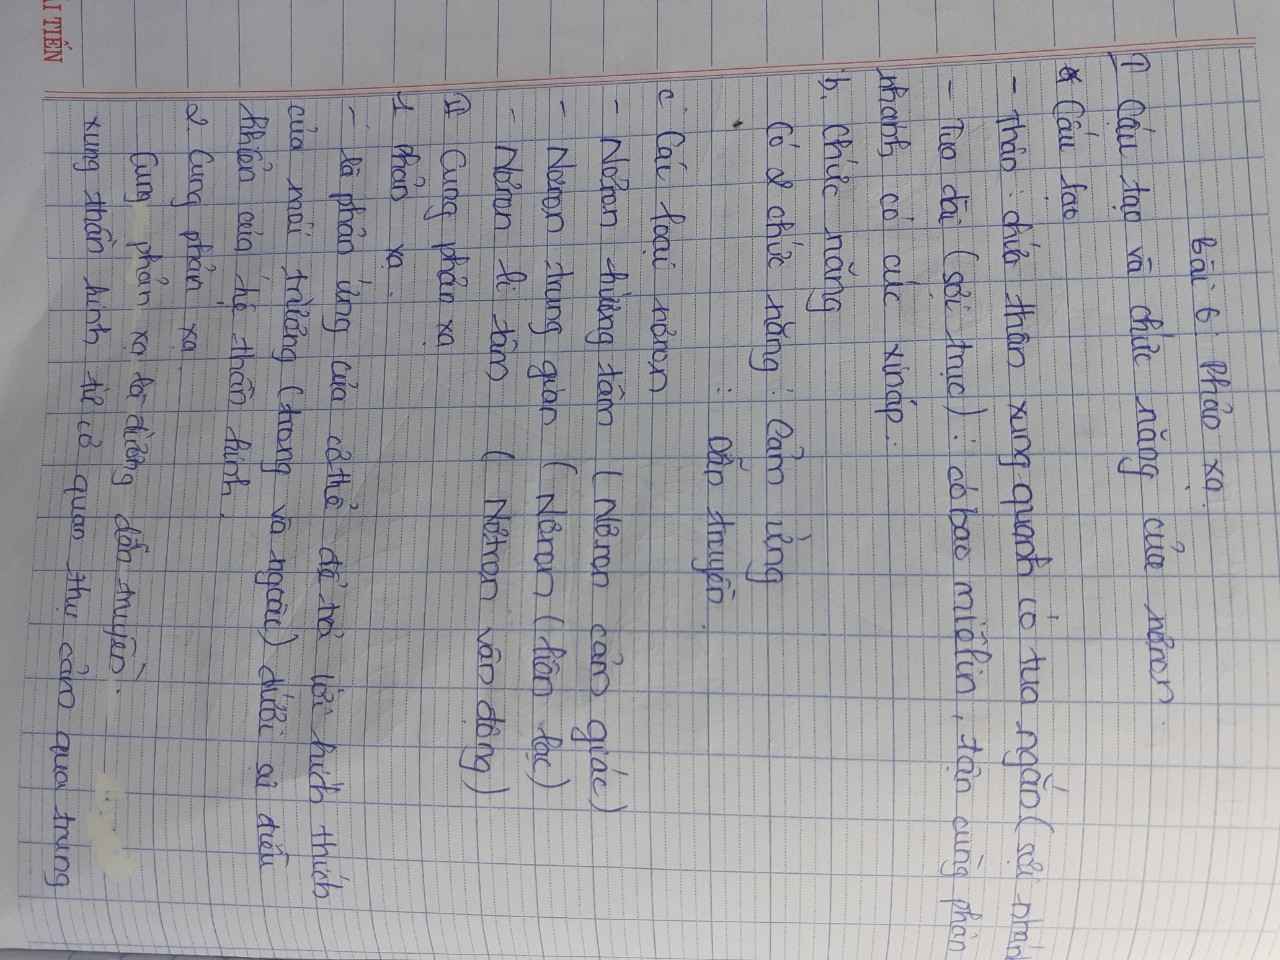 ẢI TIẾN
Bài 6: Phản xạ.
I Cấu tạo và chức năng của nơron.
a Cấu tạo
- Thân: chứa thân xung quanh có tua ngắn (sợi nhánh
- Tua dài (sợi trục): có bao miêlin, tận cùng phân
nhánh có cúc xináp.
b. Chức năng
Có 2 chức năng: Cảm ứng
: Dẫn truyền.
c. Các loại nơron
- Nơron hướng tâm (Nơron cảm giác)
- Nơron trung gian (Nơron (liên lạc)
- Nơron li tâm (Nơtron vận động)
II Cung phản xạ
1 Phản xạ.
- là phản ứng của cơ thể để trả lời kích thích
của môi trường (trong và ngoài) dưới sự điều
khiển của hệ thần kinh.
2. Cung phản xạ
Cung phản xạ là đường dẫn truyền.
xung thần kinh từ cơ quan thụ cảm qua trung